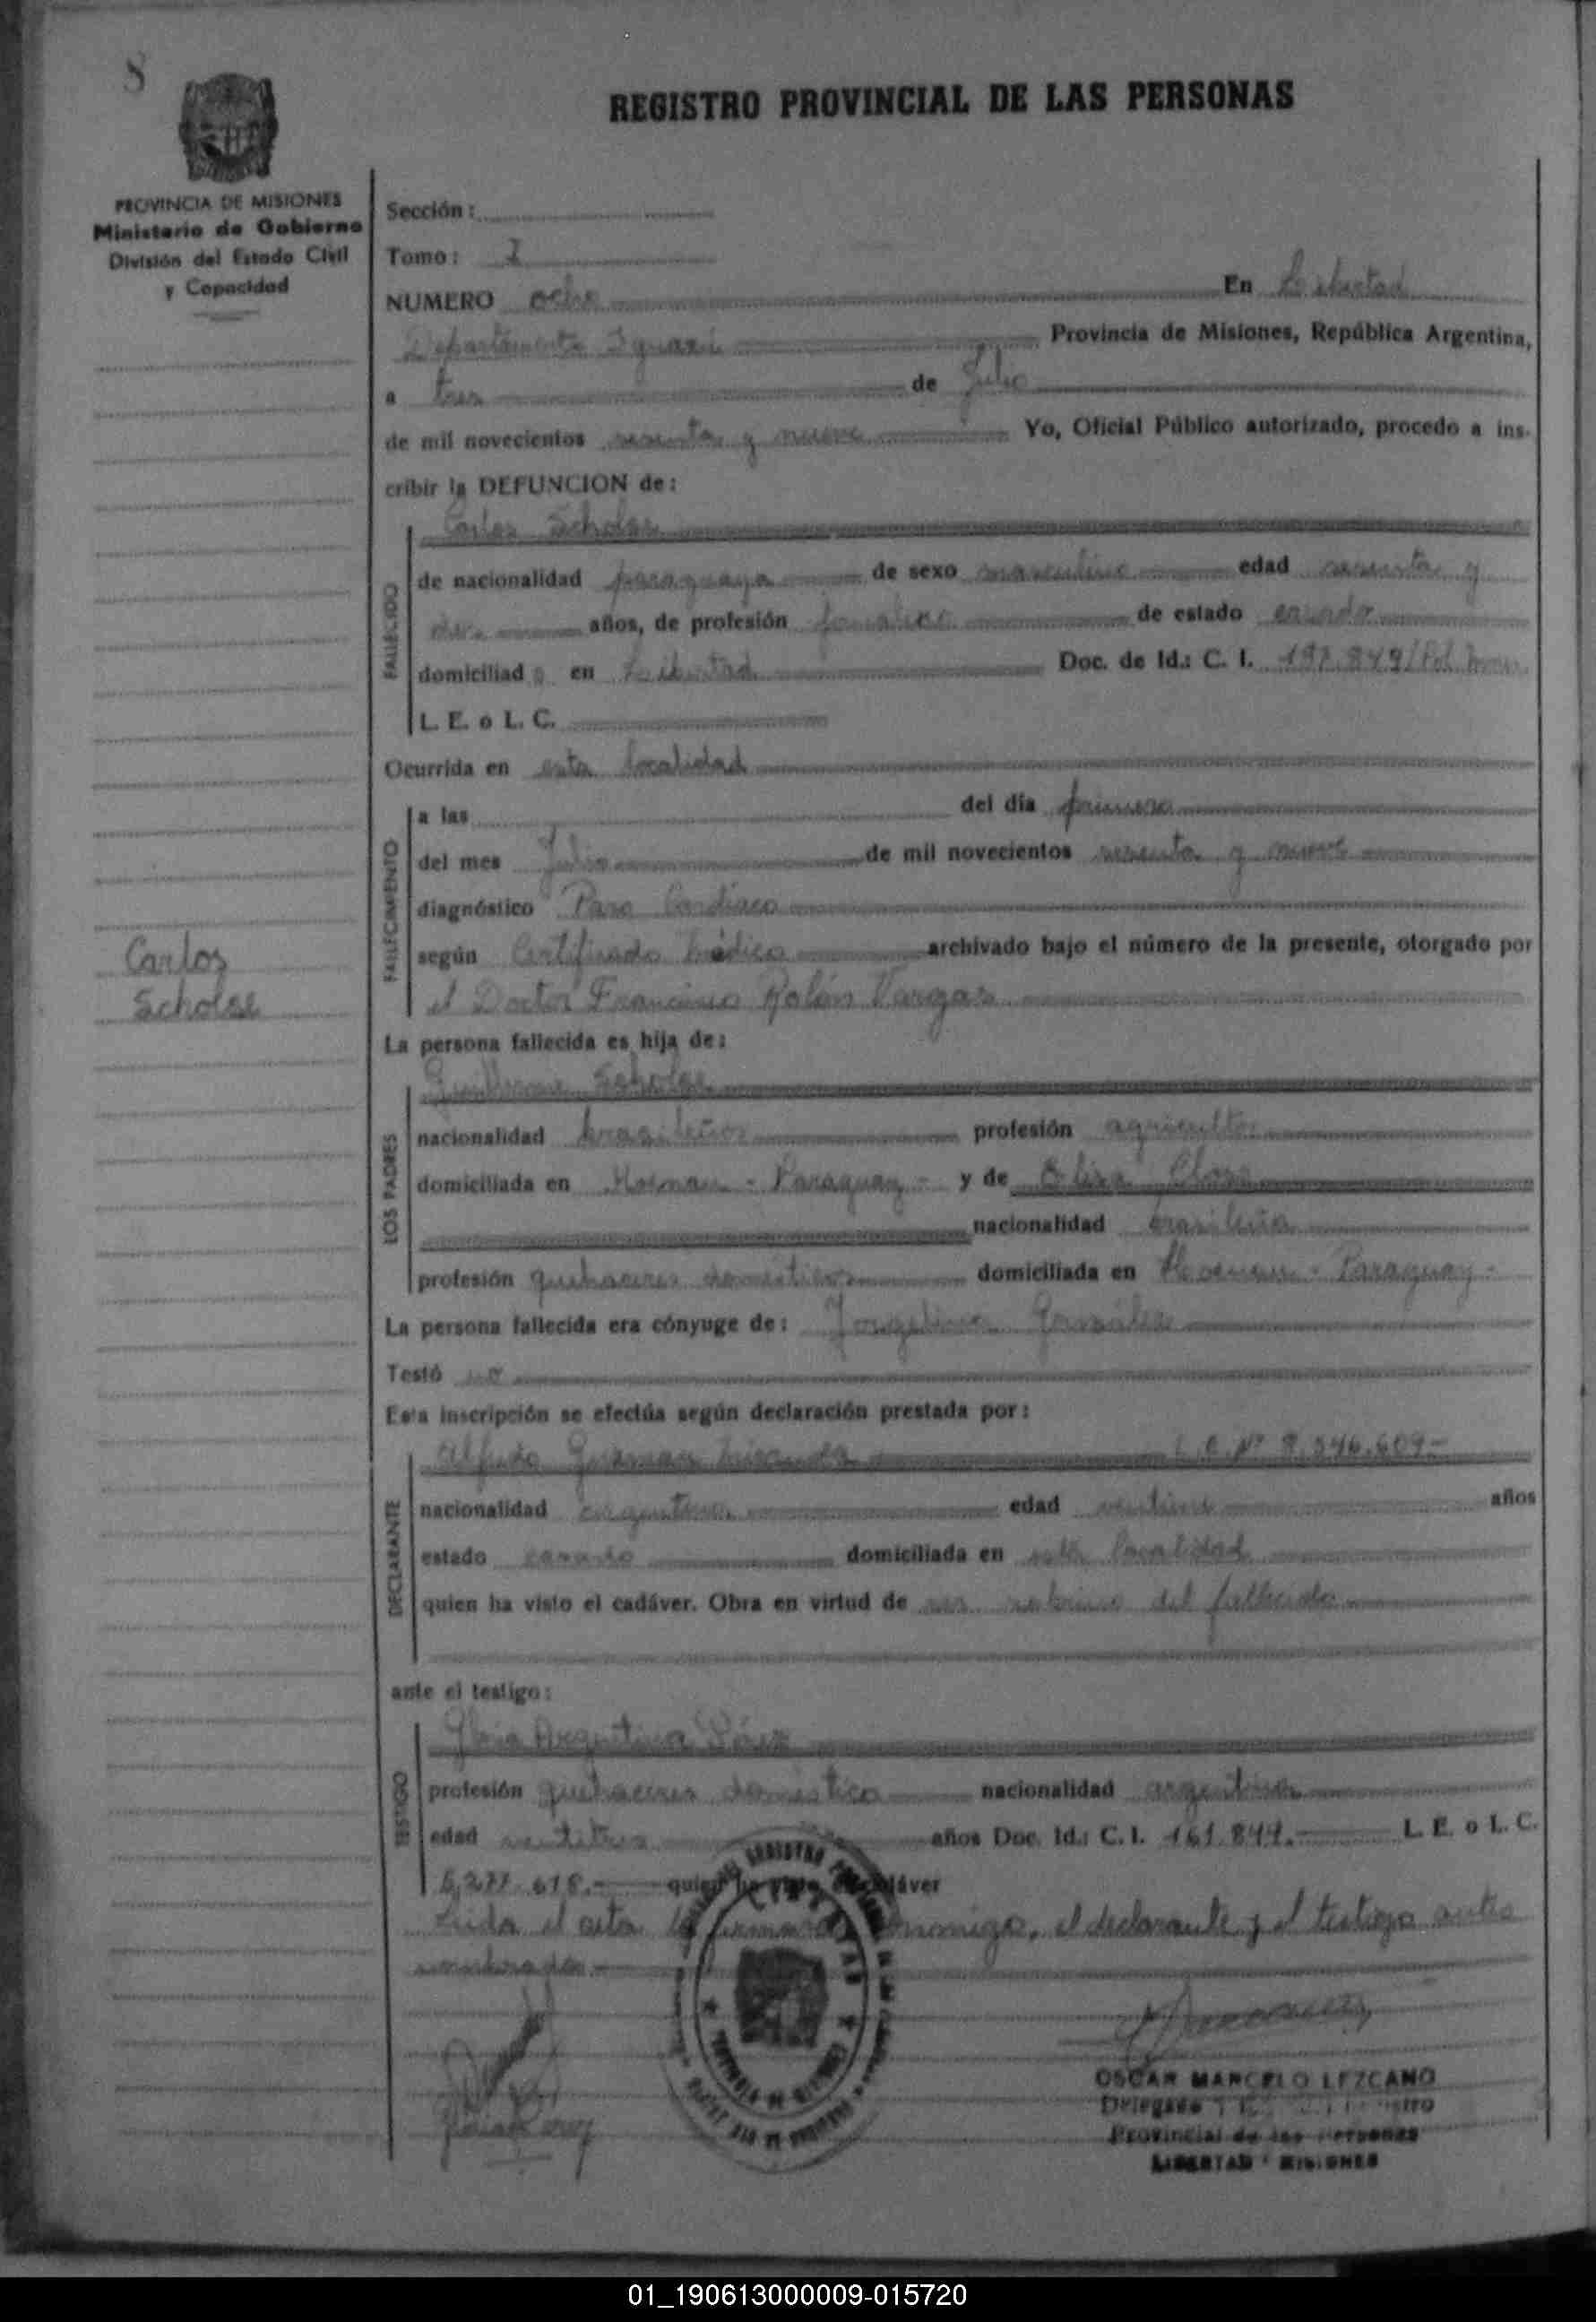 8
REGISTRO PROVINCIAL DE LAS PERSONAS
PROVINCIA DE MISIONES
Ministerio de Gobierno
División del Estado Civil
y Capacidad
Sección:
Tomo: I
NUMERO ocho En Libertad
Departamento Iguazú Provincia de Misiones, República Argentina,
a tres de Julio
de mil novecientos sesenta y nueve Yo, Oficial Público autorizado, procedo a ins-
cribir la DEFUNCION de:
Carlos Scholse
FALLECIDO
de nacionalidad paraguaya de sexo masculino edad sesenta y
años, de profesión de estado casado
domiciliado en Libertad Doc. de Id.: C. I. 197.849/Pol.
L. E. o L. C.
Ocurrida en esta localidad
FALLECIMIENTO
a las del día primero
del mes Julio de mil novecientos sesenta y nueve
diagnóstico Paro Cardíaco
según Certificado Médico archivado bajo el número de la presente, otorgado por
el Doctor Francisco Rolón Vargas
Carlos
Scholse
La persona fallecida es hija de:
Guillermo Scholse
LOS PADRES
nacionalidad brasileño profesión agricultor
domiciliada en Hohenau - Paraguay - y de
nacionalidad brasileña
profesión quehaceres domésticos domiciliada en Hohenau - Paraguay -
La persona fallecida era cónyuge de: Jorgelina González
Testó no
Esta inscripción se efectúa según declaración prestada por:
Alfredo Germán Miranda L. E. Nº 8.546.609-
DECLARANTE
nacionalidad argentina edad años
estado casado domiciliada en esta localidad
quien ha visto el cadáver. Obra en virtud de ser sobrino del fallecido
ante el testigo:
Gloria Argentina Páez
TESTIGO
profesión quehaceres doméstico nacionalidad argentina
edad veintitres años Doc. Id.: C. I. 161.841.- L. E. o L. C.
6.277.618.- quien ha visto el cadáver
Leida el acta la firmaron conmigo, el declarante y el testigo antes
nombrados.-
OSCAR MARCELO LEZCANO
Delegado
Provincial de las Personas
LIBERTAD - MISIONES
01_190613000009-015720